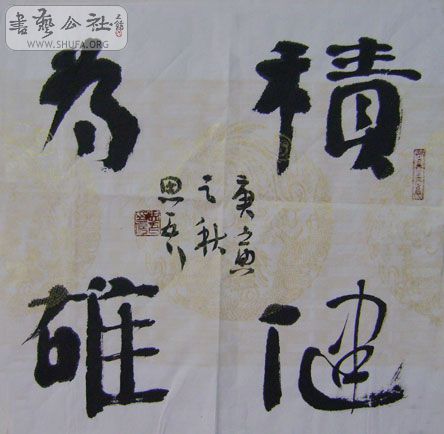 積健
为雄
庚寅
之秋
思
書藝公社
WWW.SHUFA.ORG